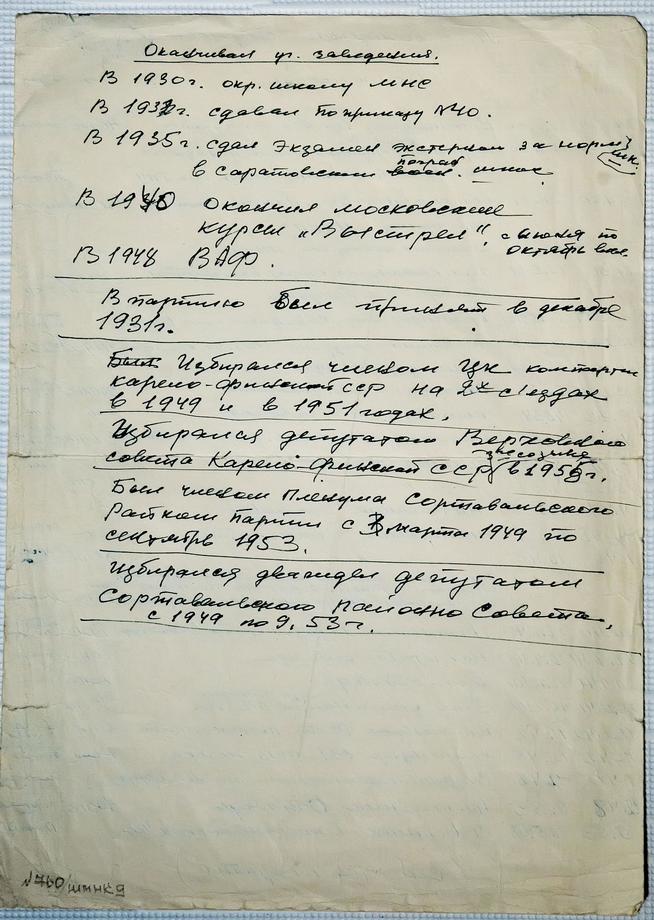 Оканчивал уч. заведения.
В 1930г. окр. школу мнс
В 1932г. сдавал по приказу №40.
В 1935г. сдал экзамен экстерном за норм.
шк.
погран
в саратовской воен. школе
В 1940 окончил московские
курсы „Выстрел", с июня по
октябрь вкл.
В 1948 ВАФ.
В партию был принят в декабре
1931г.
Был Избирался членом ЦК компартии
карело-финской сср на 2х съездах
в 1949 и в 1951 годах.
Избирался депутатом Верховного
совета Карело-Финской ССР в 195 г.
Был членом Пленума Сортавальского
Райкома партии с марта 1949 по
сентябрь 1953.
Избирался дважды депутатом
Сортавальского Районно Совета,
с 1949 по 9. 53г.
№760/шмнкд